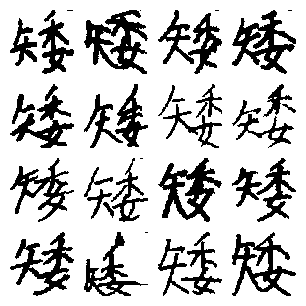 矮矮矮矮
矮矮矮矮
矮矮矮矮
矮矮矮矮